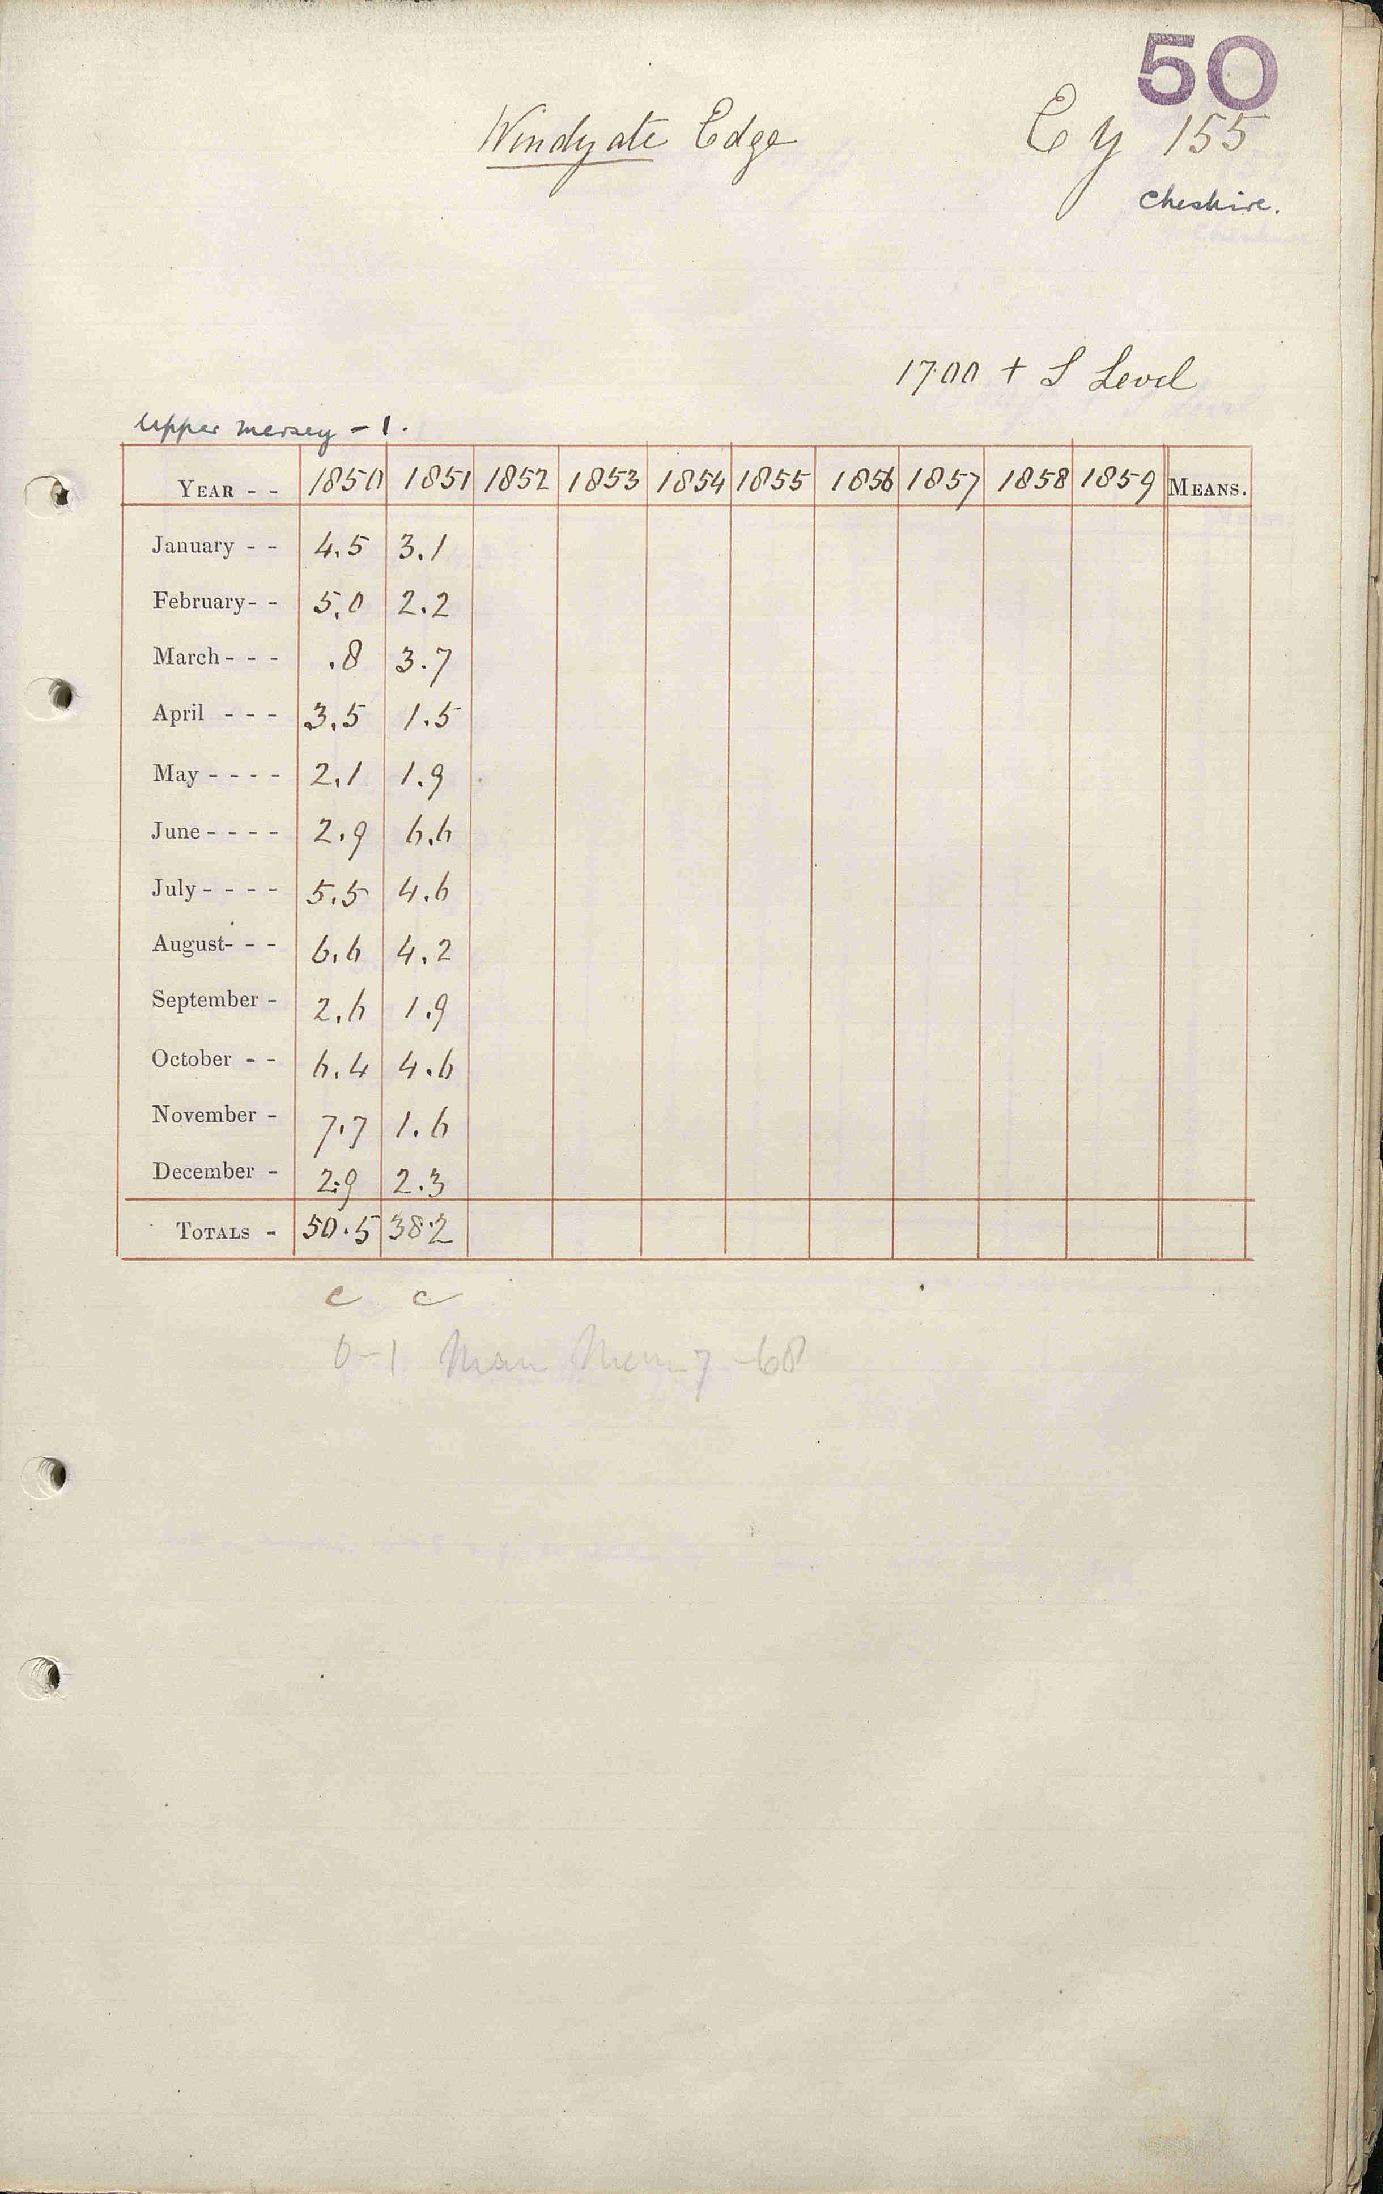 50
Windyate Edge
Cy 155
Cheshire.
1700 + S Level
Upper Mersey - 1.
YEAR - - 1850 1851 1852 1853 1854 1855 1856 1857 1858 1859 MEANS.
January - - 4.5 3.1
February - - 5.0 2.2
March - - - .8 3.7
April - - - 3.5 1.5
May - - - - 2.1 1.9
June - - - - 2.9 6.6
July - - - - 5.5 4.6
August - - - 6.6 4.2
September - 2.6 1.9
October - - 6.4 4.6
November - 7.7 1.6
December - 2.9 2.3
TOTALS - 50.5 38.2
c c
0-1 Man Mem 7 -68